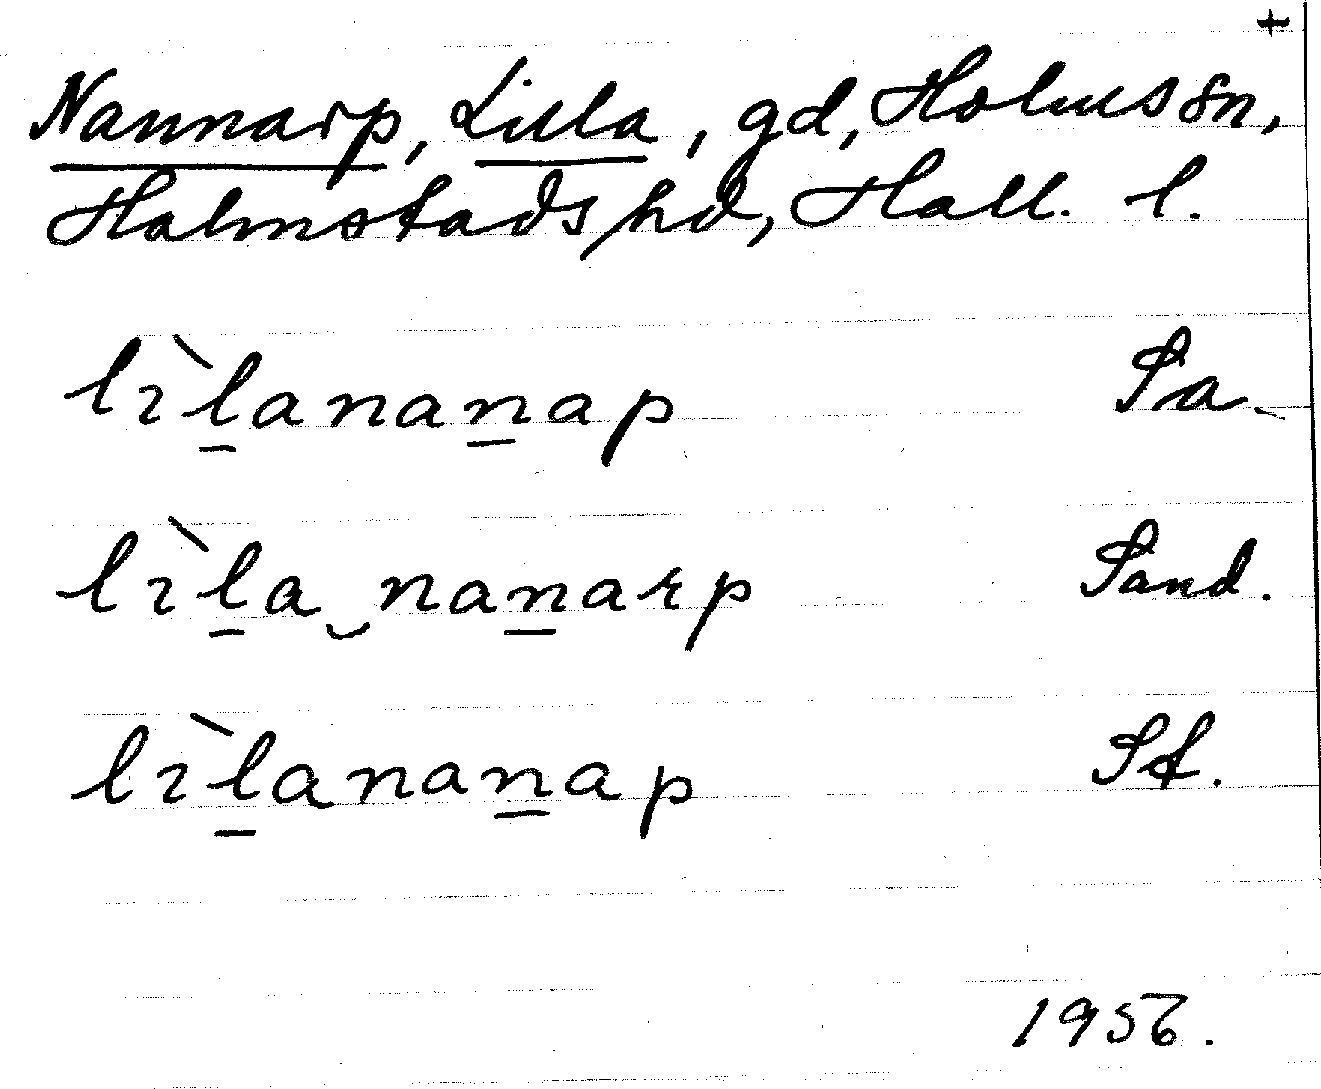 +
Nannarp, Lilla, gd, Holms sn,
Halmstads hd, Hall. l.
lìl̠anan̠ap Sa.
lìl̠a‿nan̠arp Sand.
lìl̠anan̠ap Sf.
1956.